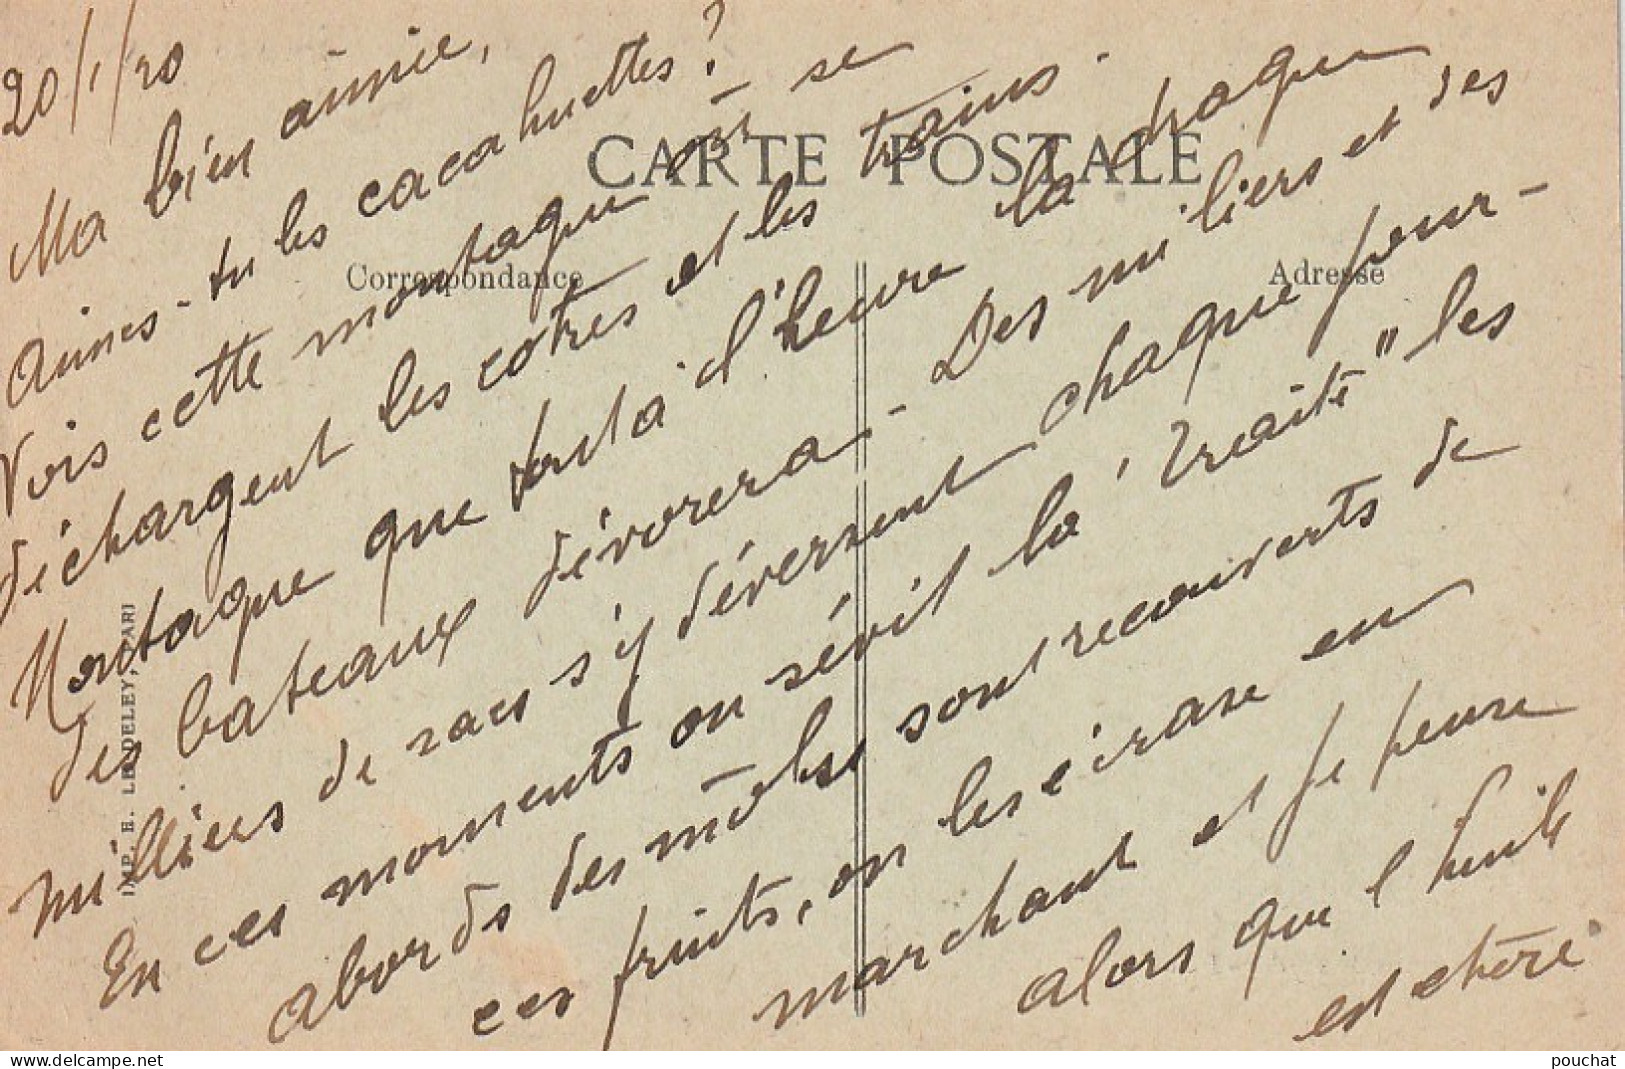 20/1/20
Ma bien aimée,
Aimes-tu les cacahuettes?
Vois cette montagne où se
déchargent les cotres et les trains.
Montagne que tout à l'heure la drague
des bateaux dévorera - Des milliers et des
milliers de sacs s'y déversent chaque jour -
En ces moments ou sévit la "Traite" les
abords des môles sont recouverts de
ces fruits, on les écrase en
marchant et je pense
alors que l'huile
est chère
CARTE POSTALE
Correspondance
Adresse
IMP. E. LE DELEY, PARI
delcampe.net
pouchat